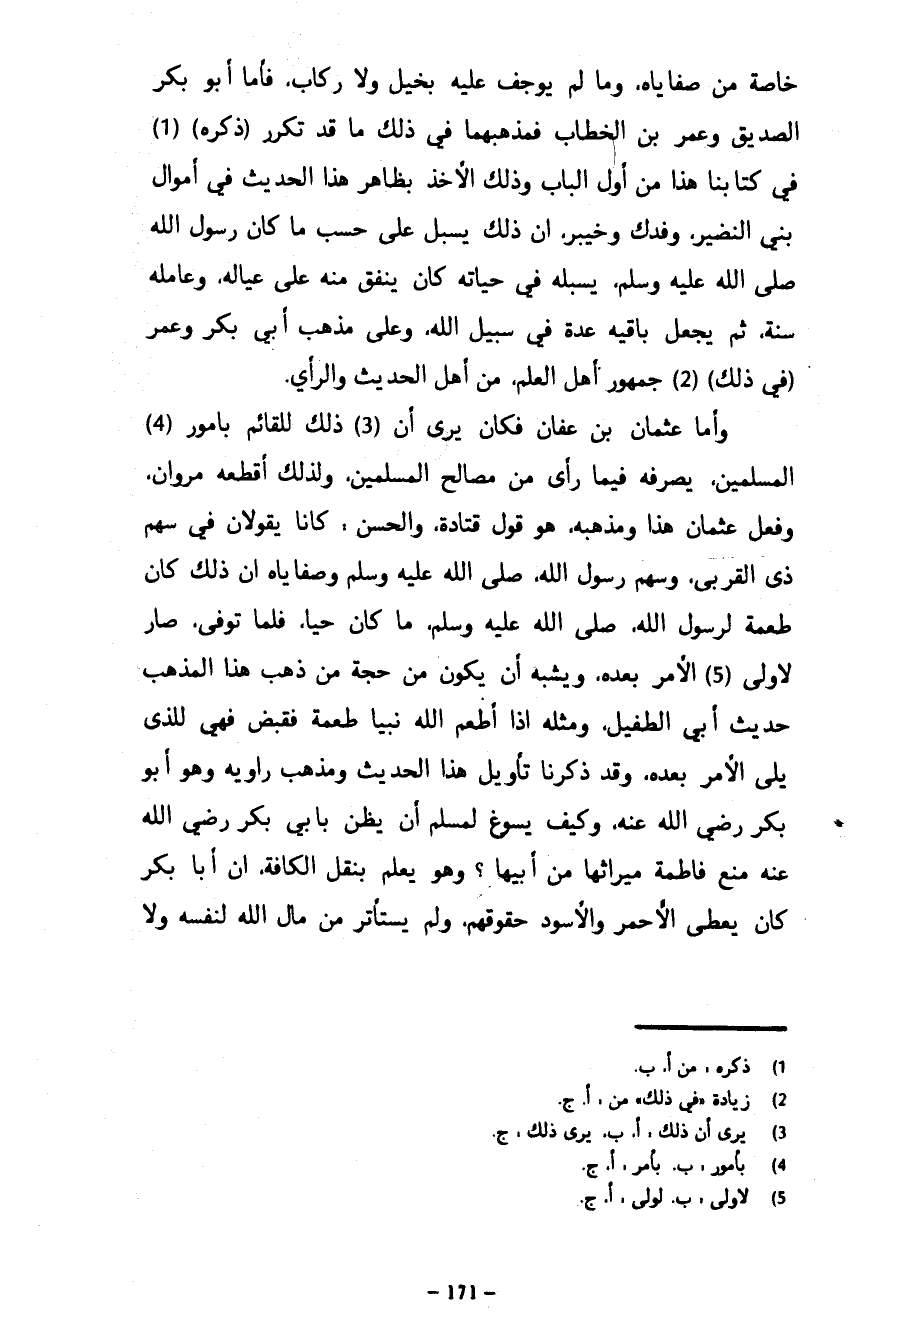 خاصة من صفاياه، وما لم يوجف عليه بخيل ولا ركاب، فأما أبو بكر
الصديق وعمر بن الخطاب فمذهبهما في ذلك ما قد تكرر (ذكره) (1)
في كتابنا هذا من أول الباب وذلك الأخذ بظاهر هذا الحديث في أموال
بني النضير، وفدك وخيبر، ان ذلك يسبل على حسب ما كان رسول الله
صلى الله عليه وسلم، يسبله في حياته كان ينفق منه على عياله، وعامله
سنة، ثم يجعل باقيه عدة في سبيل الله، وعلى مذهب أبي بكر وعمر
(في ذلك) (2) جمهور أهل العلم، من أهل الحديث والرأي.
وأما عثمان بن عفان فكان يرى أن (3) ذلك للقائم بامور (4)
المسلمين، يصرفه فيما رأى من مصالح المسلمين، ولذلك أقطعه مروان،
وفعل عثمان هذا ومذهبه، هو قول قتادة، والحسن : كانا يقولان في سهم
ذى القربى، وسهم رسول الله، صلى الله عليه وسلم وصفاياه ان ذلك كان
طعمة لرسول الله، صلى الله عليه وسلم، ما كان حيا، فلما توفى، صار
لاولى (5) الأمر بعده، ويشبه أن يكون من حجة من ذهب هذا المذهب
حديث أبي الطفيل، ومثله اذا أطعم الله نبيا طعمة فقبض فهي للذى
يلى الأمر بعده، وقد ذكرنا تأويل هذا الحديث ومذهب راويه وهو أبو
بكر رضي الله عنه، وكيف يسوغ لمسلم أن يظن بابي بكر رضي الله
عنه منع فاطمة ميراثها من أبيها ؟ وهو يعلم بنقل الكافة، ان أبا بكر
كان يعطى الأحمر والأسود حقوقهم، ولم يستأثر من مال الله لنفسه ولا
1) ذكره : من أ. ب.
2) زيادة «في ذلك» من : أ. ج.
3) يرى أن ذلك : أ. ب. يرى ذلك : ج.
4) بأمور : ب. بأمر : أ. ج.
5) لاولى : ب. لولى : أ. ج.
- 171 -